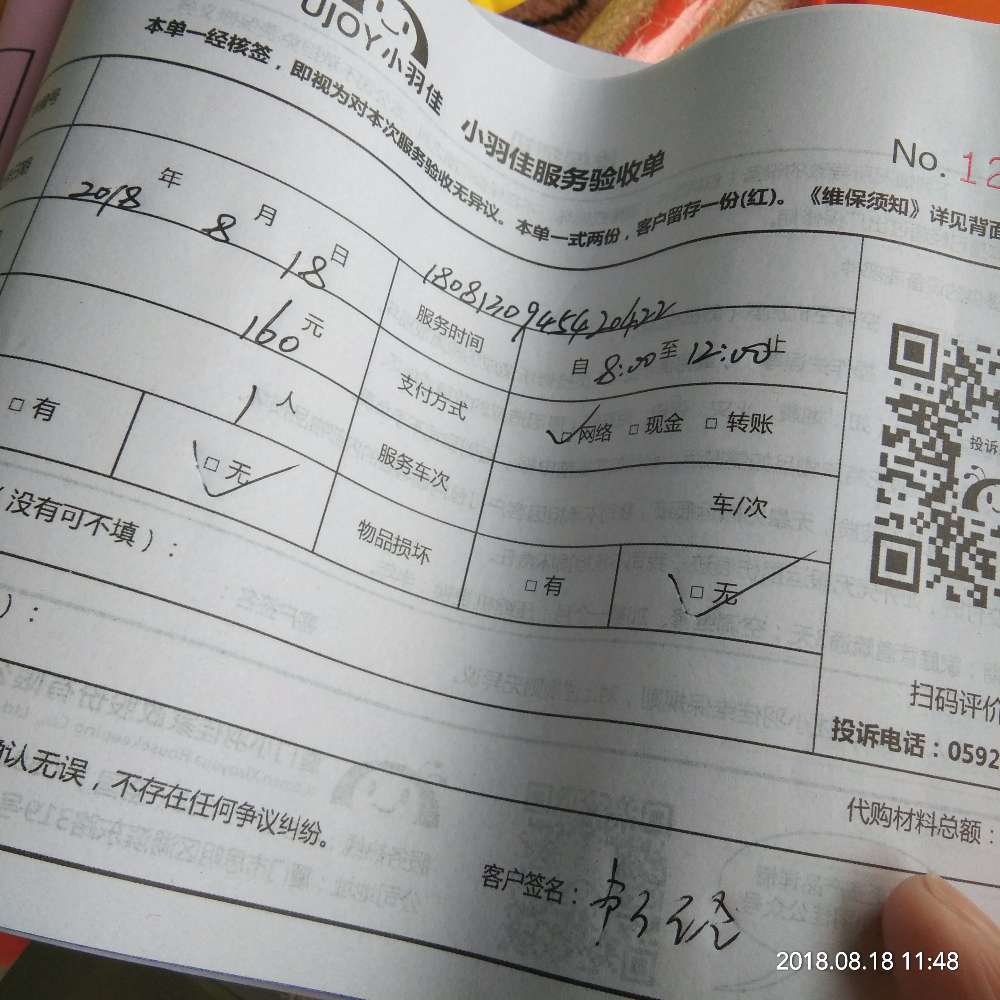 UJOY小羽佳 小羽佳服务验收单
No. 12
本单一经核签，即视为对本次服务验收无异议。本单一式两份，客户留存一份(红)。《维保须知》详见背面
编号
1808130945420422
2018 年 8 月 18 日 服务时间 自 8:00 至 12:00 止
160 元 支付方式 □ 网络 □ 现金 □ 转账
1 人 服务车次 车/次
□ 有 □ 无 物品损坏 □ 有 □ 无
没有可不填）：
）：
扫码评价
投诉
投诉电话：0592
认无误，不存在任何争议纠纷。
代购材料总额：
客户签名：
2018.08.18 11:48